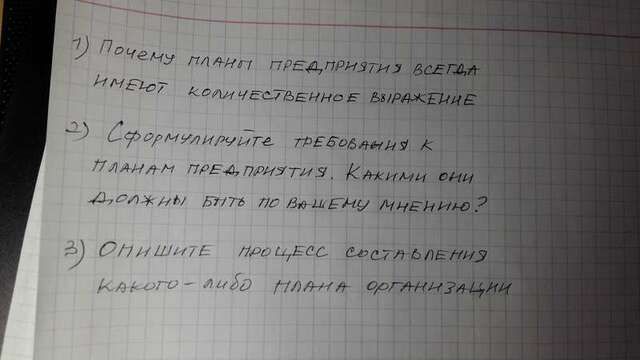 1) Почему планы предприятия всегда
имеют количественное выражение
2) Сформулируйте требования к
планам предприятия. Какими они
должны быть по вашему мнению?
3) Опишите процесс составления
какого-либо плана организации